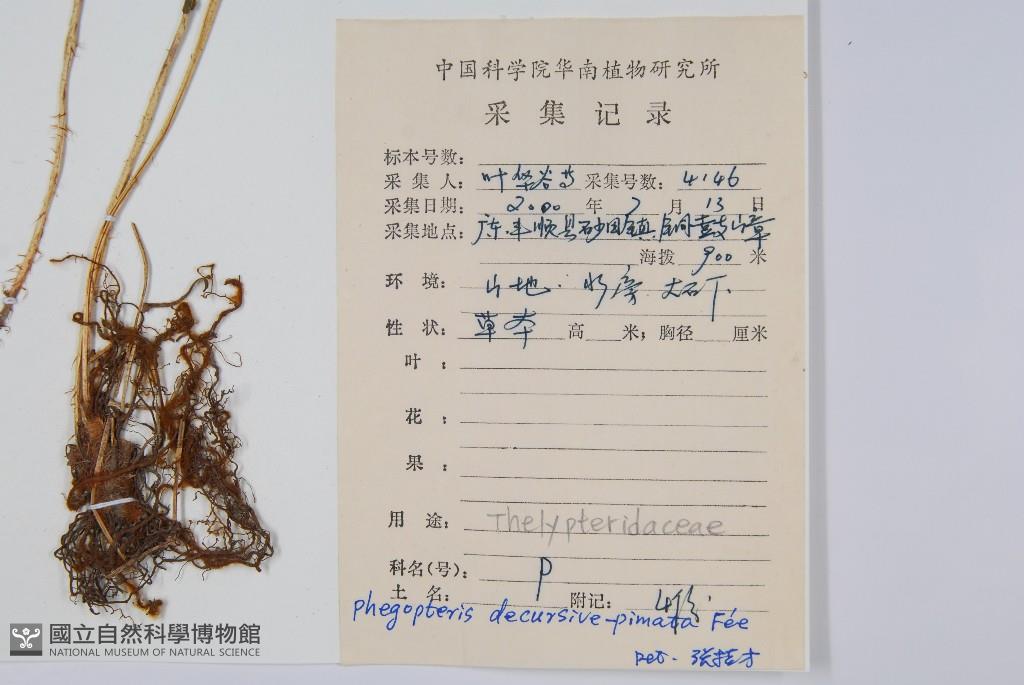 中国科学院华南植物研究所
采集记录
标本号数：
采集人：叶华谷等 采集号数：4146
采集日期：2000年7月13日
采集地点：广东.丰顺县砂田镇.铜鼓嶂
海拨 900 米
环境：山地. 水旁 大石下.
性状：草本 高 米；胸径 厘米
叶：
花：
果：
用途：Thelypteridaceae
科名(号)：P
土名： 附记：4份.
phegopteris decursive-pinnata Fée
Det. 张桂才
國立自然科學博物館
NATIONAL MUSEUM OF NATURAL SCIENCE